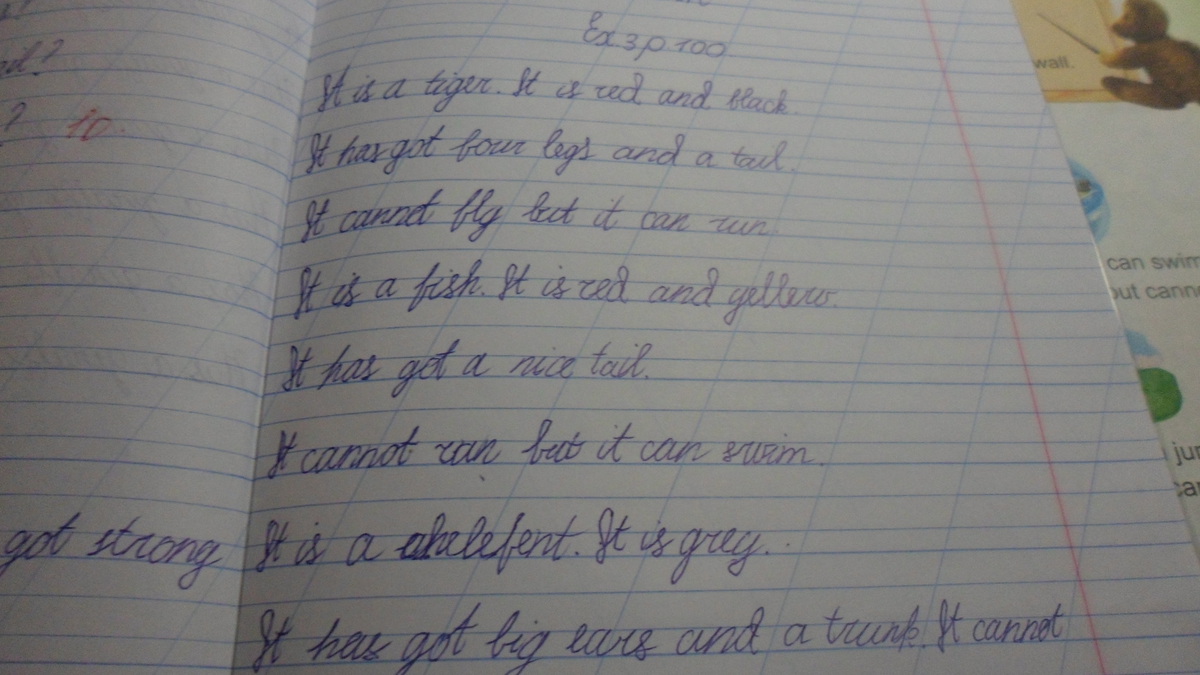 Ex 3 p 100
It is a tiger. It is red and black
It has got four legs and a tail.
It cannot fly but it can run.
It is a fish. It is red and yellow.
It has got a nice tail.
It cannot ran but it can swim.
got strong
It is a ahelefent. It is grey.
It has got big ears and a trunk. It cannot
10.
wall.
can swim
out